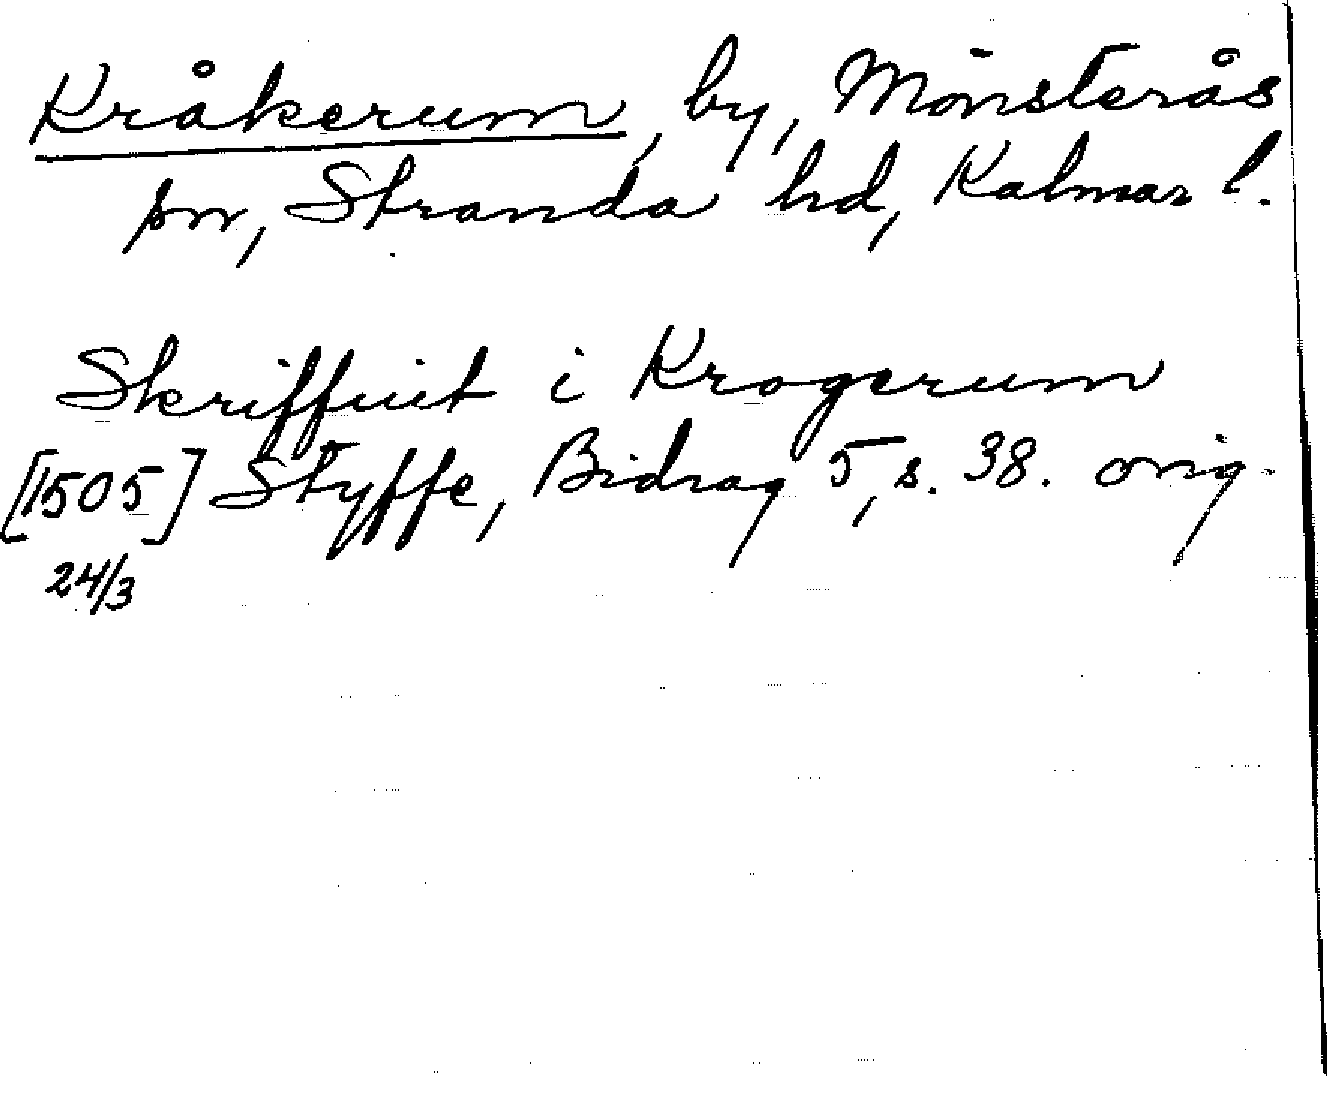 Kråkerum, by, Mönsterås
sn, Stranda hd, Kalmar l.
Skriffuit i Krogerum
[1505] Styffe, Bidrag 5, s. 38. orig.
24/3